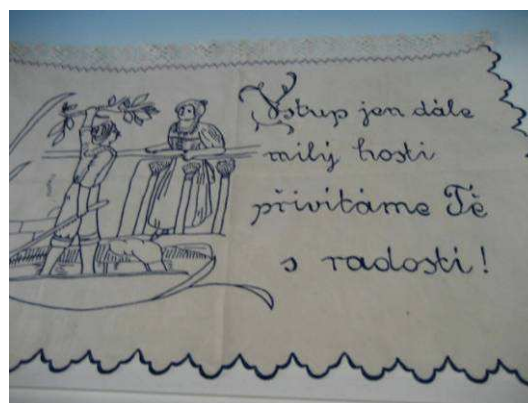 Vstup jen dále
milý hosti
přivítáme Tě
s radostí!